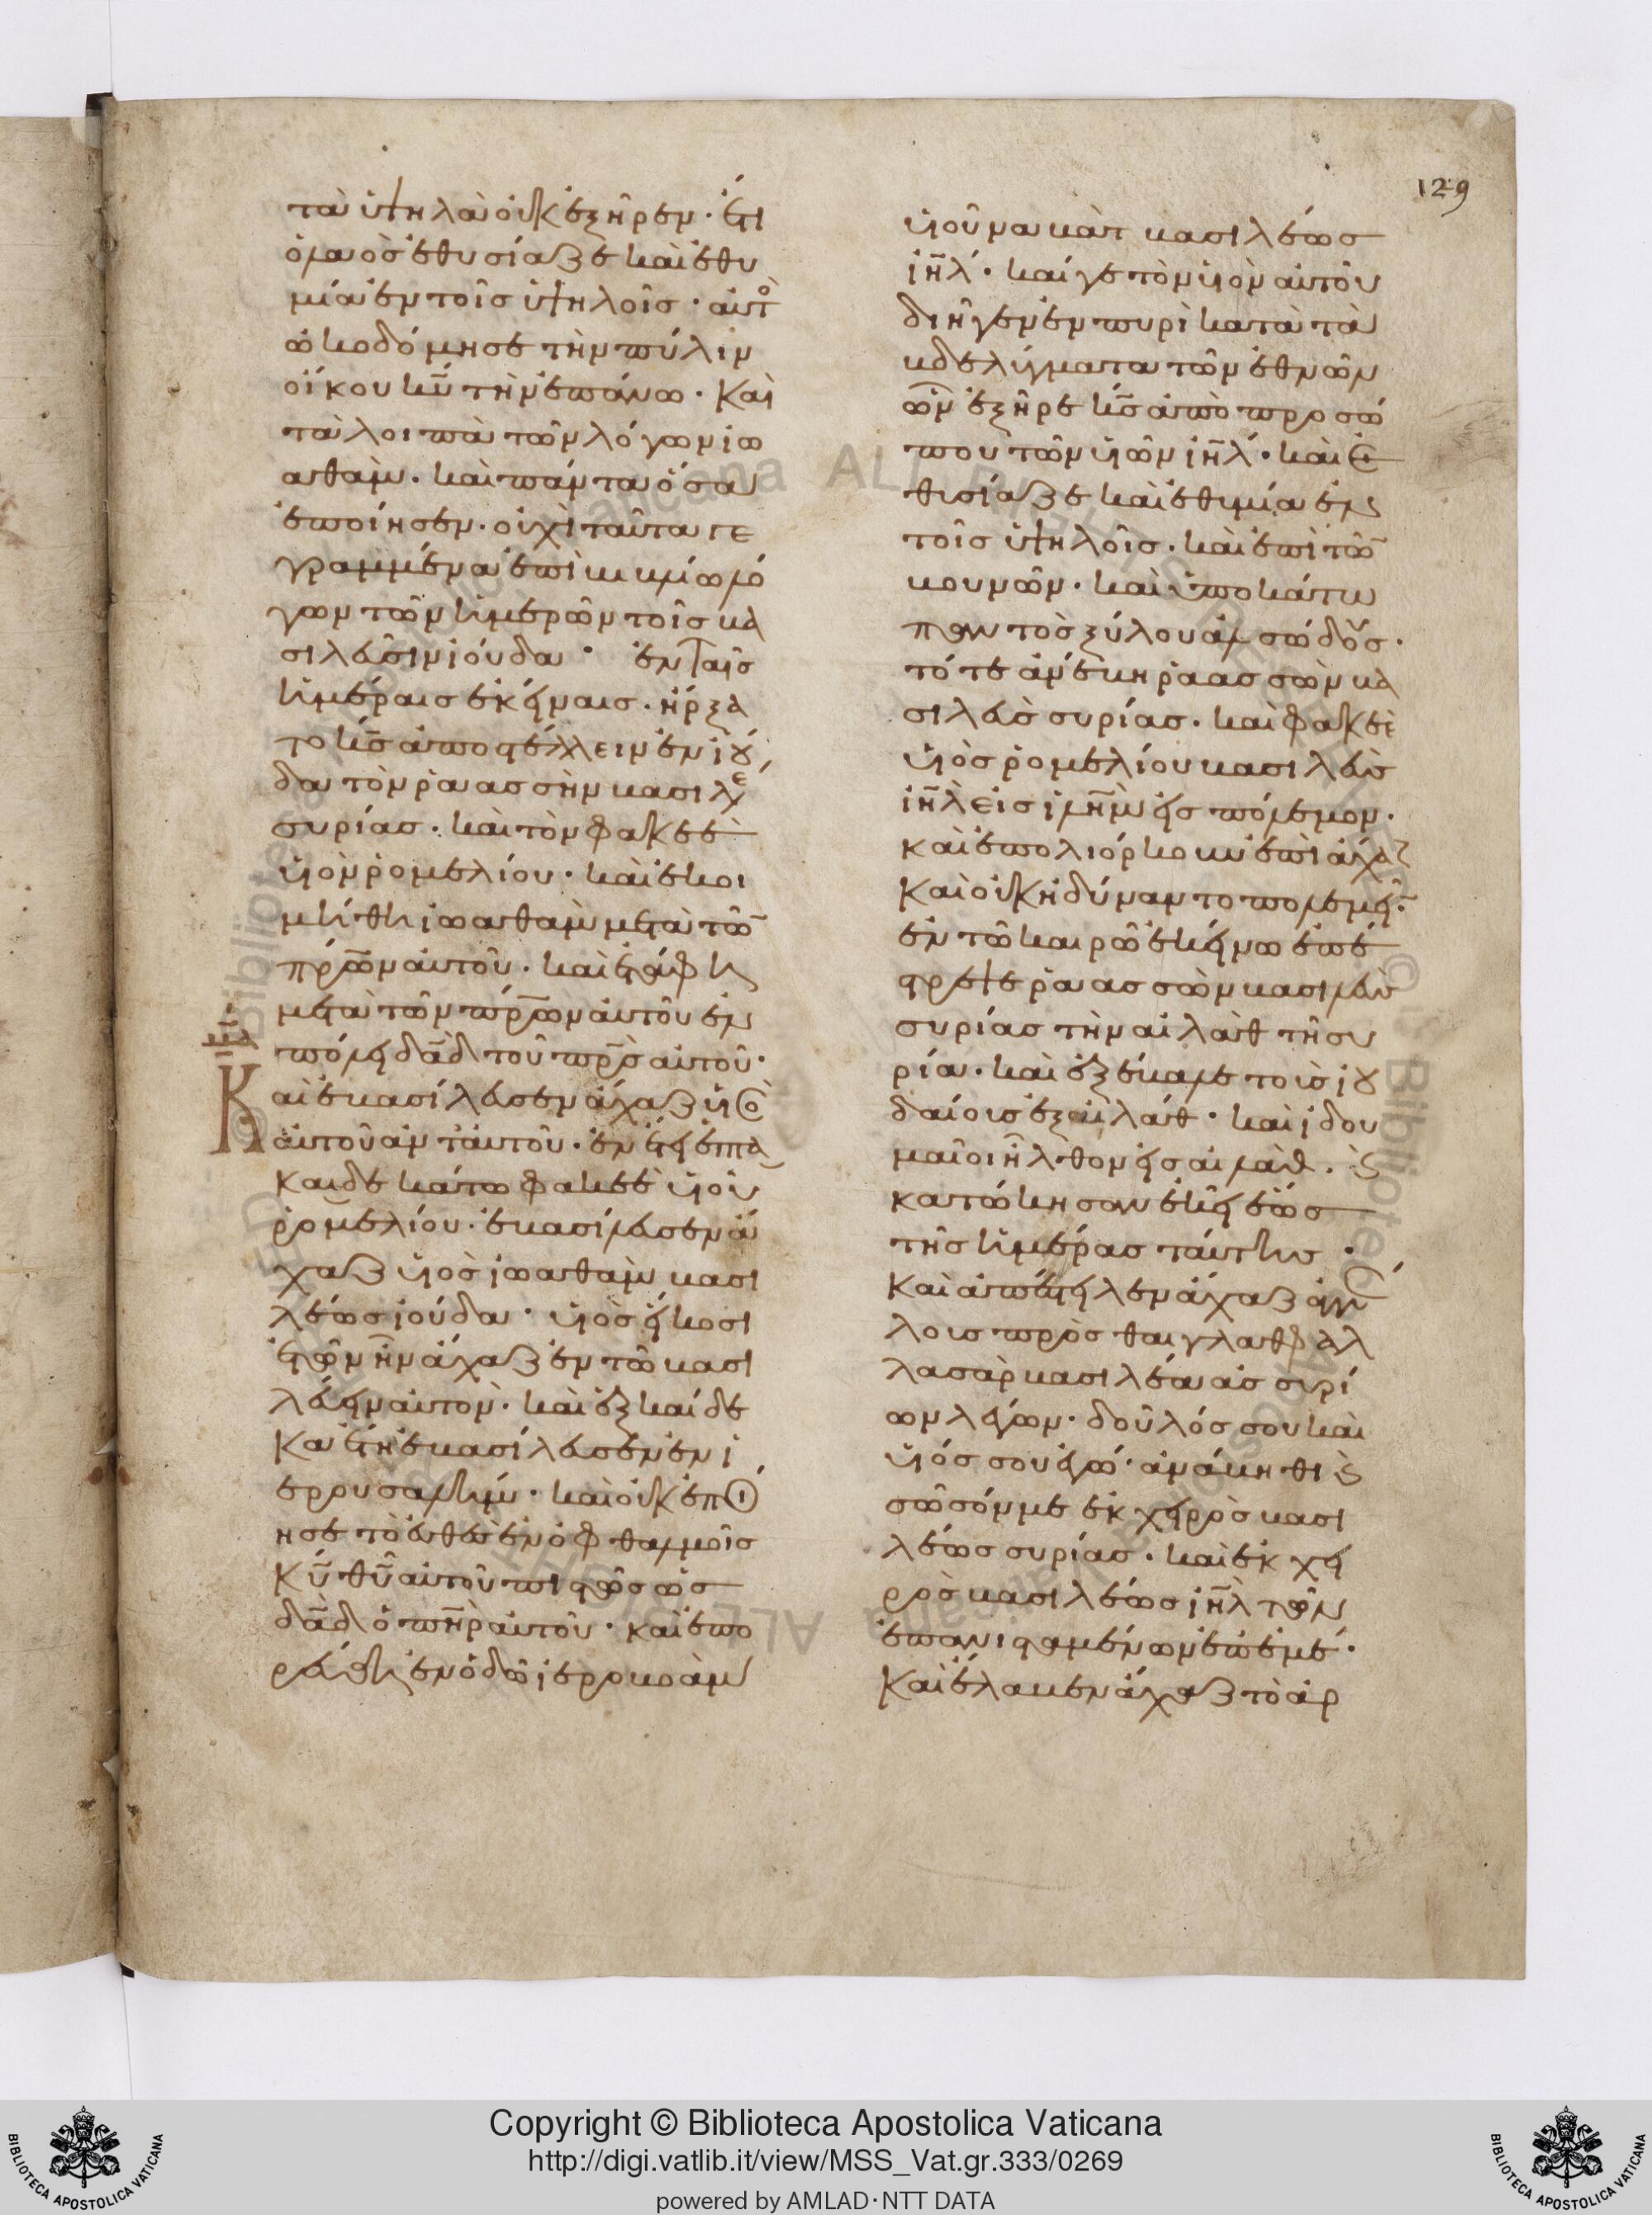 129
τὰ ὑψηλὰ οὐκ ἐξῆρεν· ἔτι
ὁ λαὸς ἐθυσίαζε καὶ ἐθυ
μία ἐν τοῖς ὑψηλοῖς· αὐτὸ
ὠκοδόμησε τὴν πύλην
οἴκου κυ τὴν ἐπάνω· Καὶ
τὰ λοιπὰ τῶν λόγων ἰω
αθὰμ· καὶ πάντα ὅσα
ἐποίησεν· οὐχὶ ταῦτα γε
γραμμένα ἐπὶ βιβλίω λό
γων τῶν ἡμερῶν τοῖς βα
σιλεῦσιν ἰούδα· ἐν ταῖς
ἡμέραις ἐκείναις· ἤρξα
το κς ἀποστέλλειν ἐν ἰού
δα τὸν ῥαασσὴν βασιλέ
συρίας· καὶ τὸν φακεὲ
υἱὸν ῥομελίου· καὶ ἐκοι
μήθη ἰωαθὰμ μετὰ τῶ
πρων αὐτοῦ· καὶ ἐτάφη
μετὰ τῶν πρων αὐτοῦ ἐν
πόλει δαδ τοῦ πρς αὐτοῦ·
Καὶ ἐβασίλευσεν ἄχαζ υἱὸ
αὐτοῦ ἀντ αὐτοῦ· ἐν ἔτει ἑπτα
καιδεκάτω φακεὲ υἱοῦ
ῥομελίου· ἐβασίλευσεν ἄ
χαζ υἱὸς ἰωαθὰμ βασι
λέως ἰούδα· υἱὸς εἴκοσι
ἐτῶν ἦν ἄχαζ ἐν τῶ βασι
λεύειν αὐτὸν· καὶ ἑξκαίδε
κα ἔτη ἐβασίλευσεν ἐν ἱ
ερουσαλήμ· καὶ οὐκ ἐποί
ησε τὸ εὐθὲς ἐν ὀφθαλμοῖς
κυ θυ αὐτοῦ πιστῶς ὡς
δαδ ὁ πηρ αὐτοῦ· καὶ ἐπο
ρεύθη ἐν ὁδῶ ἱεροβοὰμ
υἱοῦ ναβὰτ βασιλέως
ιηλ· καί γε τὸν υἱὸν αὐτοῦ
διῆγεν ἐν πυρὶ κατὰ τὰ
βδελύγματα τῶν ἐθνῶν
ὧν ἐξῆρε κς ἀπὸ προσώ
που τῶν υἱῶν ιηλ· καὶ ἐ
θυσίαζε καὶ ἐθυμία ἐν
τοῖς ὑψηλοῖς· καὶ ἐπὶ τῶ
βουνῶν· καὶ ὑποκάτω
παντὸς ξύλου ἀλσώδους·
τότε ἀνέβη ῥαασσὼν βα
σιλεὺς συρίας· καὶ φακεὲ
υἱὸς ῥομελίου βασιλεὺς
ιηλ εἰς ιλημ εἰς πόλεμον·
καὶ ἐπολιόρκουν ἐπὶ ἄχαζ
Καὶ οὐκ ἠδύναντο πολεμεῖ·
ἐν τῶ καιρῶ ἐκείνω ἐπέ
στρεψε ῥαασσὼν βασιλεὺς
συρίας τὴν αἰλὰθ τῆ συ
ρία· καὶ ἐξέβαλε τοὺς ἰου
δαίους ἐξ αἰλάθ· καὶ ἰδου
μαῖοι ἦλθον εἰς αἰλὰθ· καὶ
κατώκησαν ἐκεῖ ἕως
τῆς ἡμέρας ταύτης·
Καὶ ἀπέστειλεν ἄχαζ ἀγγέ
λους πρὸς θαιγλαθφαλ
λασὰρ βασιλέα ἀσσυρί
ων λέγων· δοῦλός σου καὶ
υἱός σου ἐγώ· ἀνάβηθι καὶ
σῶσόν με ἐκ χειρὸς βασι
λέως συρίας· καὶ ἐκ χει
ρὸς βασιλέως ιηλ τῶν
ἐπανισταμένων ἐπ᾽ ἐμέ·
Καὶ ἔλαβεν ἄχαζ τὸ ἀρ
Copyright © Biblioteca Apostolica Vaticana
http://digi.vatlib.it/view/MSS_Vat.gr.333/0269
powered by AMLAD·NTT DATA
BIBLIOTECA APOSTOLICA VATICANA
BIBLIOTECA APOSTOLICA VATICANA